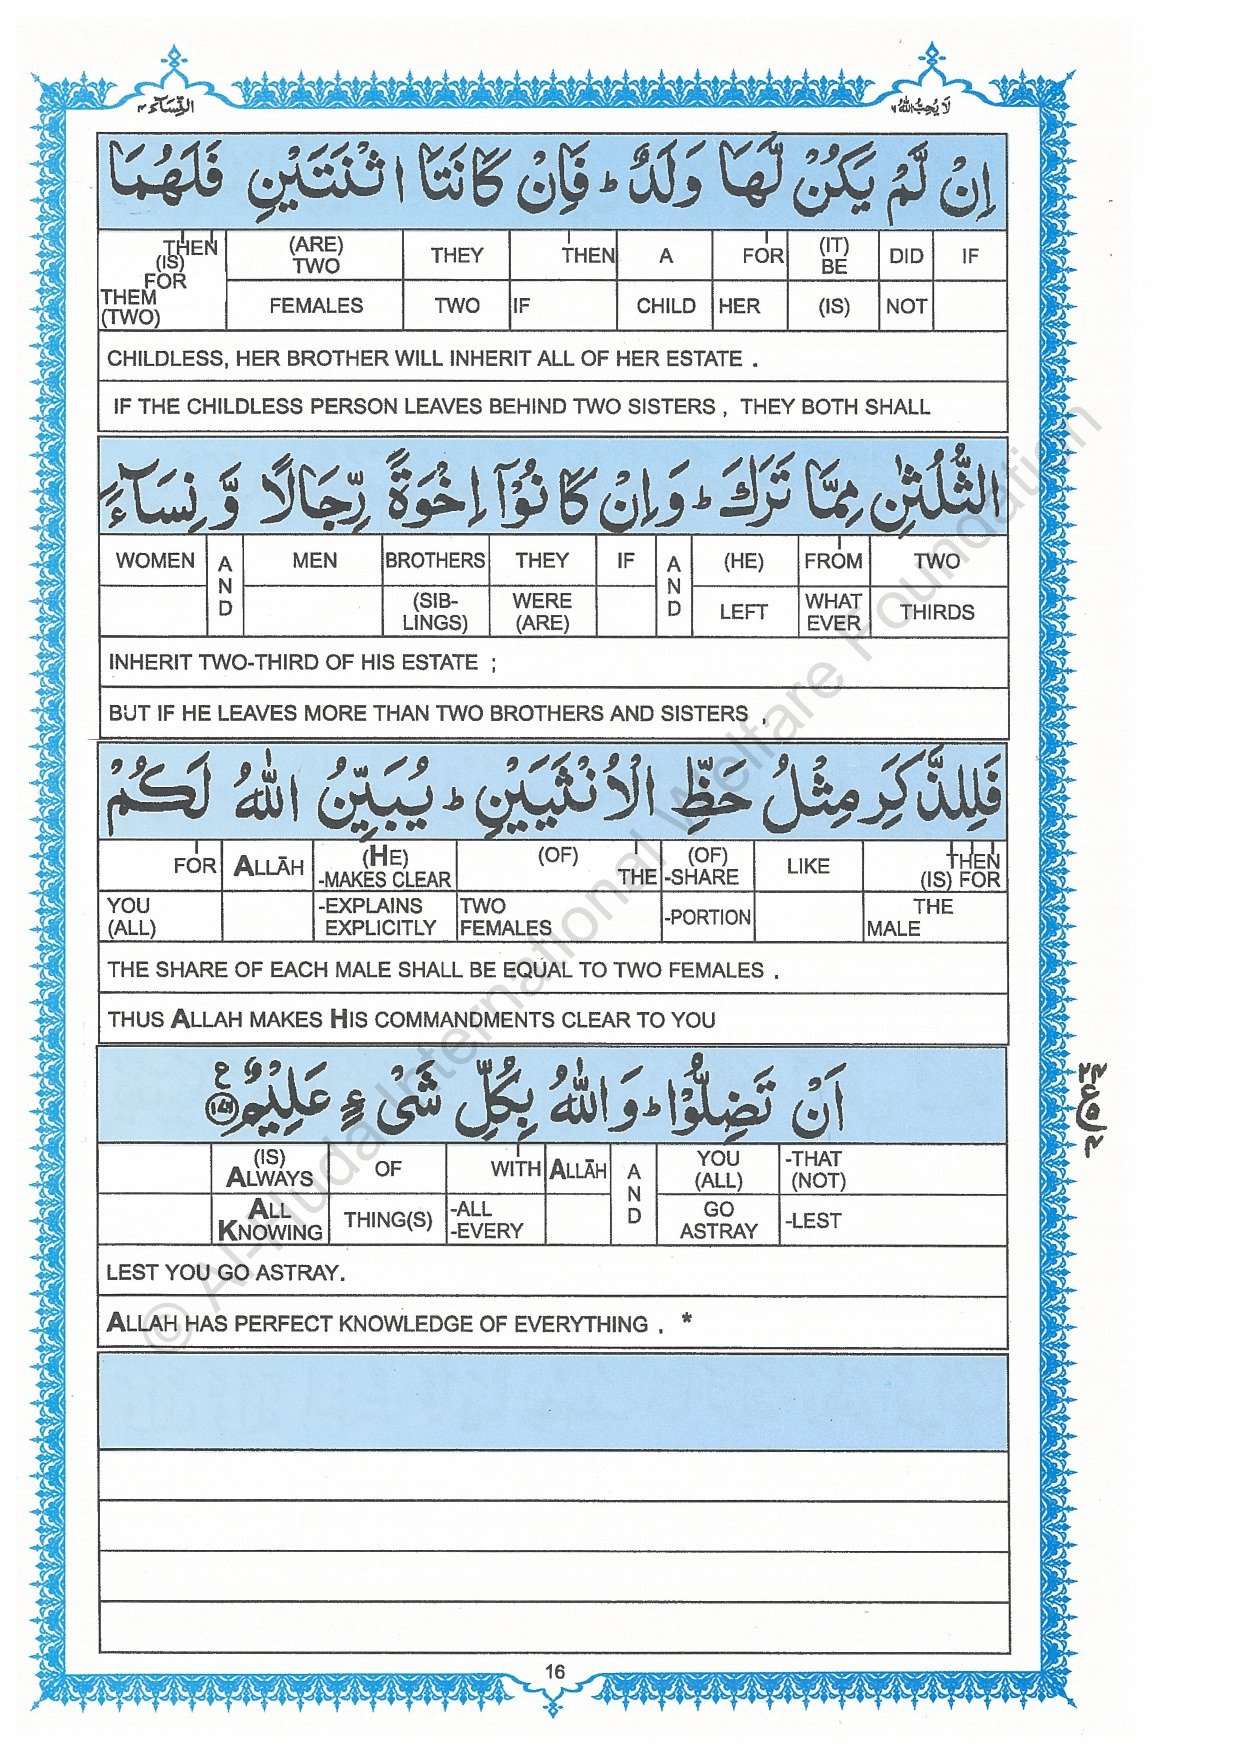 النِّسَآء ۴
لَا يُحِبُّ اللّٰهُ ۶
اِنْ لَّمْ يَكُنْ لَّهَا وَلَدٌ ؕ فَاِنْ كَانَتَا اثْنَتَيْنِ فَلَهُمَا
THEN (ARE) THEY THEN A FOR (IT) DID IF
(IS) TWO BE
FOR
THEM (TWO) FEMALES TWO IF CHILD HER (IS) NOT
CHILDLESS, HER BROTHER WILL INHERIT ALL OF HER ESTATE .
IF THE CHILDLESS PERSON LEAVES BEHIND TWO SISTERS , THEY BOTH SHALL
الثُّلُثٰنِ مِمَّا تَرَكَ ؕ وَاِنْ كَانُوْٓا اِخْوَةً رِّجَالًا وَّ نِسَآءً
WOMEN AND MEN BROTHERS THEY IF AND (HE) FROM TWO
(SIB-LINGS) WERE (ARE) LEFT WHAT EVER THIRDS
INHERIT TWO-THIRD OF HIS ESTATE ;
BUT IF HE LEAVES MORE THAN TWO BROTHERS AND SISTERS ,
فَلِلذَّكَرِ مِثْلُ حَظِّ الْاُنْثَيَيْنِ ؕ يُبَيِّنُ اللّٰهُ لَكُمْ
FOR ALLĀH (HE) -MAKES CLEAR (OF) THE (OF) -SHARE LIKE THEN (IS) FOR
YOU (ALL) -EXPLAINS EXPLICITLY TWO FEMALES -PORTION THE MALE
THE SHARE OF EACH MALE SHALL BE EQUAL TO TWO FEMALES .
THUS ALLAH MAKES HIS COMMANDMENTS CLEAR TO YOU
اَنْ تَضِلُّوْا ؕ وَاللّٰهُ بِكُلِّ شَىْءٍ عَلِيْمٌ ﴿۱۷۶﴾ ع
(IS) ALWAYS OF WITH ALLĀH AND YOU (ALL) -THAT (NOT)
ALL KNOWING THING(S) -ALL -EVERY GO ASTRAY -LEST
LEST YOU GO ASTRAY.
ALLAH HAS PERFECT KNOWLEDGE OF EVERYTHING . *
16
© Al-Huda International Welfare Foundation